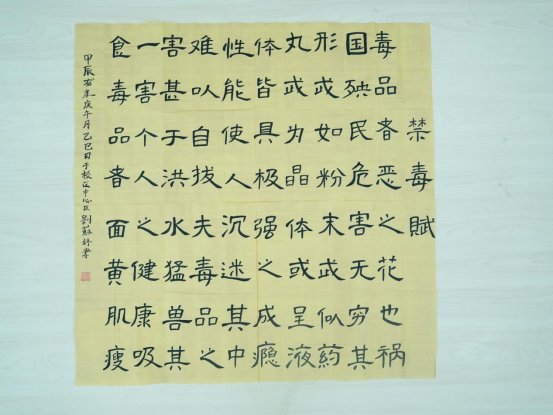 禁毒賦
毒品者恶之花也祸
国殃民危害无穷其
形或如粉末或似药
丸或为晶体或呈液
体皆具极强之成瘾
性能使人沉迷其中
难以自拔夫毒品之
害甚于洪水猛兽其
一害个人之健康吸
食毒品者面黄肌瘦
甲辰年庚午月乙巳日于校区中心劉蘇書